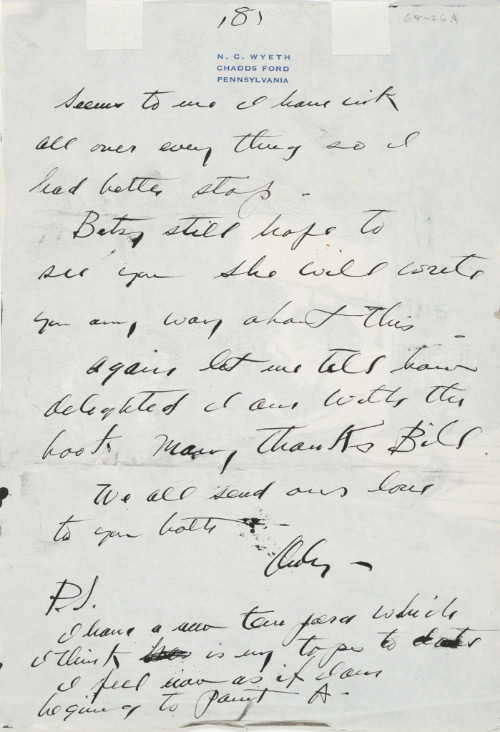 (8)
68-26A
N. C. WYETH
CHADDS FORD
PENNSYLVANIA
Seems to me I have ink
all over every thing so I
had better stop –
Betsy still hope to
see you she will write
you any way about this –
again let me tell how
delighted I am with the
book. Many thanks Bill.
We all send our love
to you both
Andy –
P.S.
I have a new tempera which
I think is my tops to date
I feel now as if I am
begining to paint